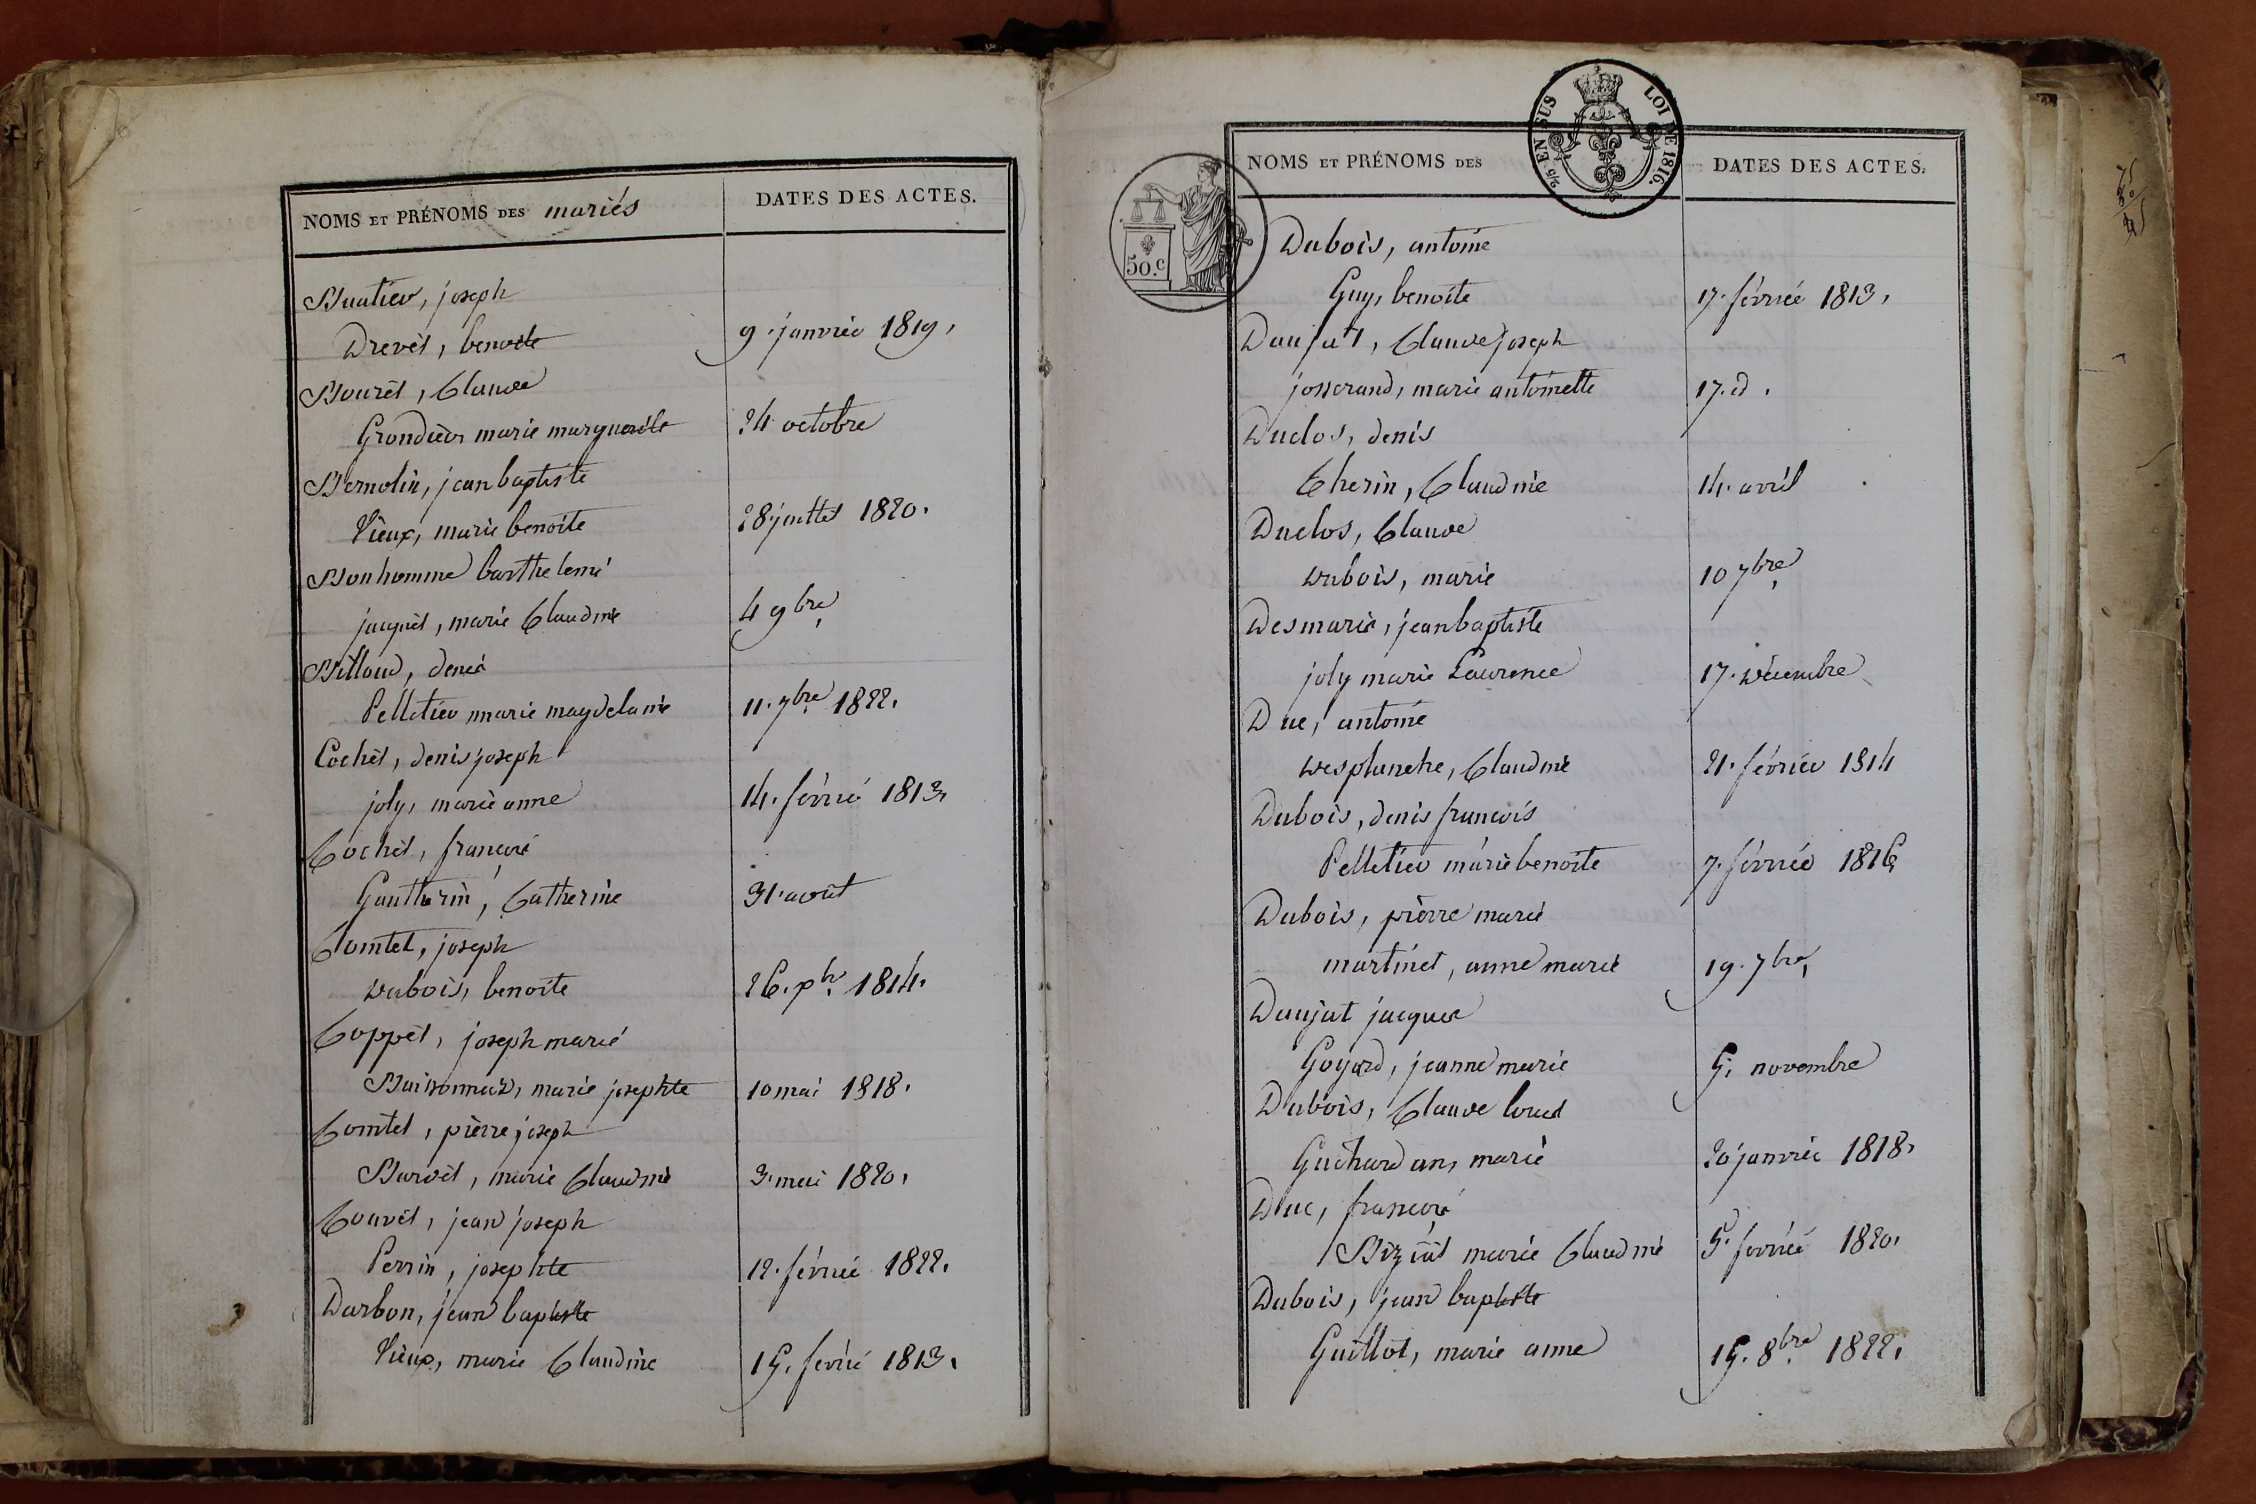 NOMS ET PRÉNOMS DES mariés
DATES DES ACTES.
Buatier, joseph
Drevet, benoite
9. janvier 1819.
Bouret, Claude
Grondier marie marguerite
24 octobre
Bernolin, jean baptiste
Vieux, marie benoite
28 juillet 1820.
Bonhomme barthelemi
jacquet, marie Claudine
4 9bre
Billoud, denis
Pelletier marie magdelaine
11. 7bre 1822.
Cochet, denis joseph
joly, marie anne
14. février 1813.
Cochet, françois
Gautherin, Catherine
31. août
Comtet, joseph
dubois, benoite
1814.
Coppet, joseph marie
marie josephte
10 mai 1818.
Comtet, pierre joseph
Bardet, marie Claudine
3. mai 1820.
Couvet, jean joseph
Perrin, josephte
12. février 1822.
Darbon, jean baptiste
Vieux, marie Claudine
15. février 1813.
2/5 EN SUS LOI DE 1816.
50.c
NOMS ET PRÉNOMS DES
DATES DES ACTES.
Dubois, antoine
Guy, benoite
17. février 1813.
Daujat, Claude joseph
josserand, marie antoinette
17. d.
Duclos, denis
Therin, Claudine
14. avril
Duclos, Claude
dubois, marie
10 7bre
Desmaris, jean baptiste
joly marie Laurence
17. décembre
Duc, antoine
desplanche, Claudine
21. février 1814
Dubois, denis françois
Pelletier marie benoite
7. février 1816
Dubois, pierre marie
martinet, anne marie
19. 7bre,
Daujat jacques
Goyard, jeanne marie
5. novembre
Dubois, Claude louis
Guichardan, marie
20 janvier 1818.
Duc, françois
Biziat marie Claudine
5. février 1820.
Dubois, jean baptiste
Guillot, marie anne
15. 8bre 1822.